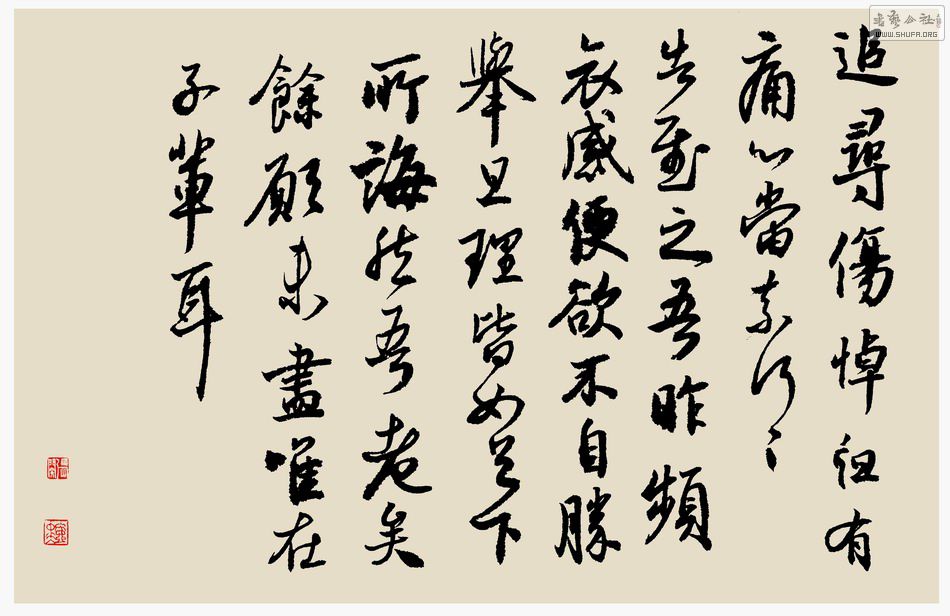 追尋傷悼但有
痛心當奈何〻
告慰之吾昨頻
哀感便欲不自勝
舉旦理皆如足下
所誨然吾老矣
餘願未盡唯在
子輩耳
WWW.SHUFA.ORG